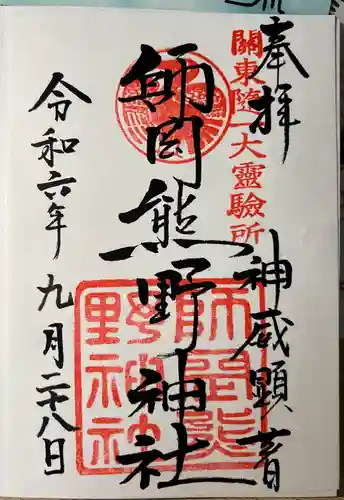 奉拝
關東隨一大靈驗所
神威顕著
師岡熊野神社
師岡熊野神社
令和六年九月二十八日